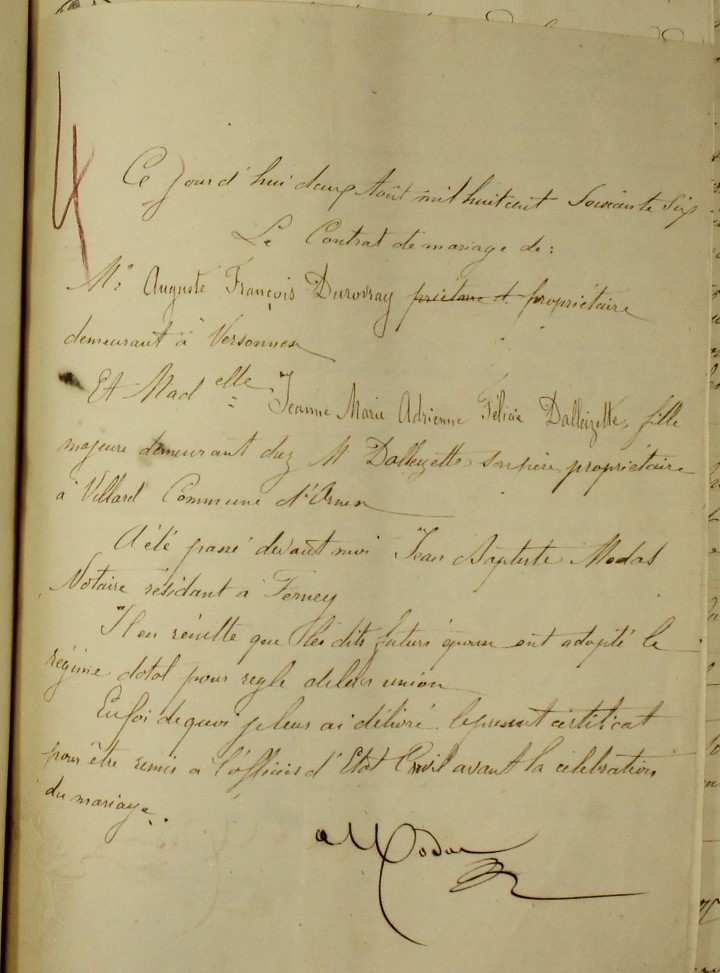 4
Ce jour d'hui deux Août mil huit cent Soixante Six
Le Contrat de mariage de :
Mr Auguste François Durovray propriétaire
demeurant à Versonnex
Et Mad elle Jeanne Marie Adrienne Félicie Dalleizette, fille
majeure demeurant chez M Dalleizette, son père, propriétaire
à Villard Commune d'Ornex
A été passé devant moi Jean Baptiste Modas
Notaire résidant à Ferney
Il en résulte que les dits futurs époux ont adopté le
régime dotal pour regle de leur union
En foi de quoi je leur ai délivré le present certificat
pour être remis a l'officier d'Etat Civil avant la célébration
du mariage.